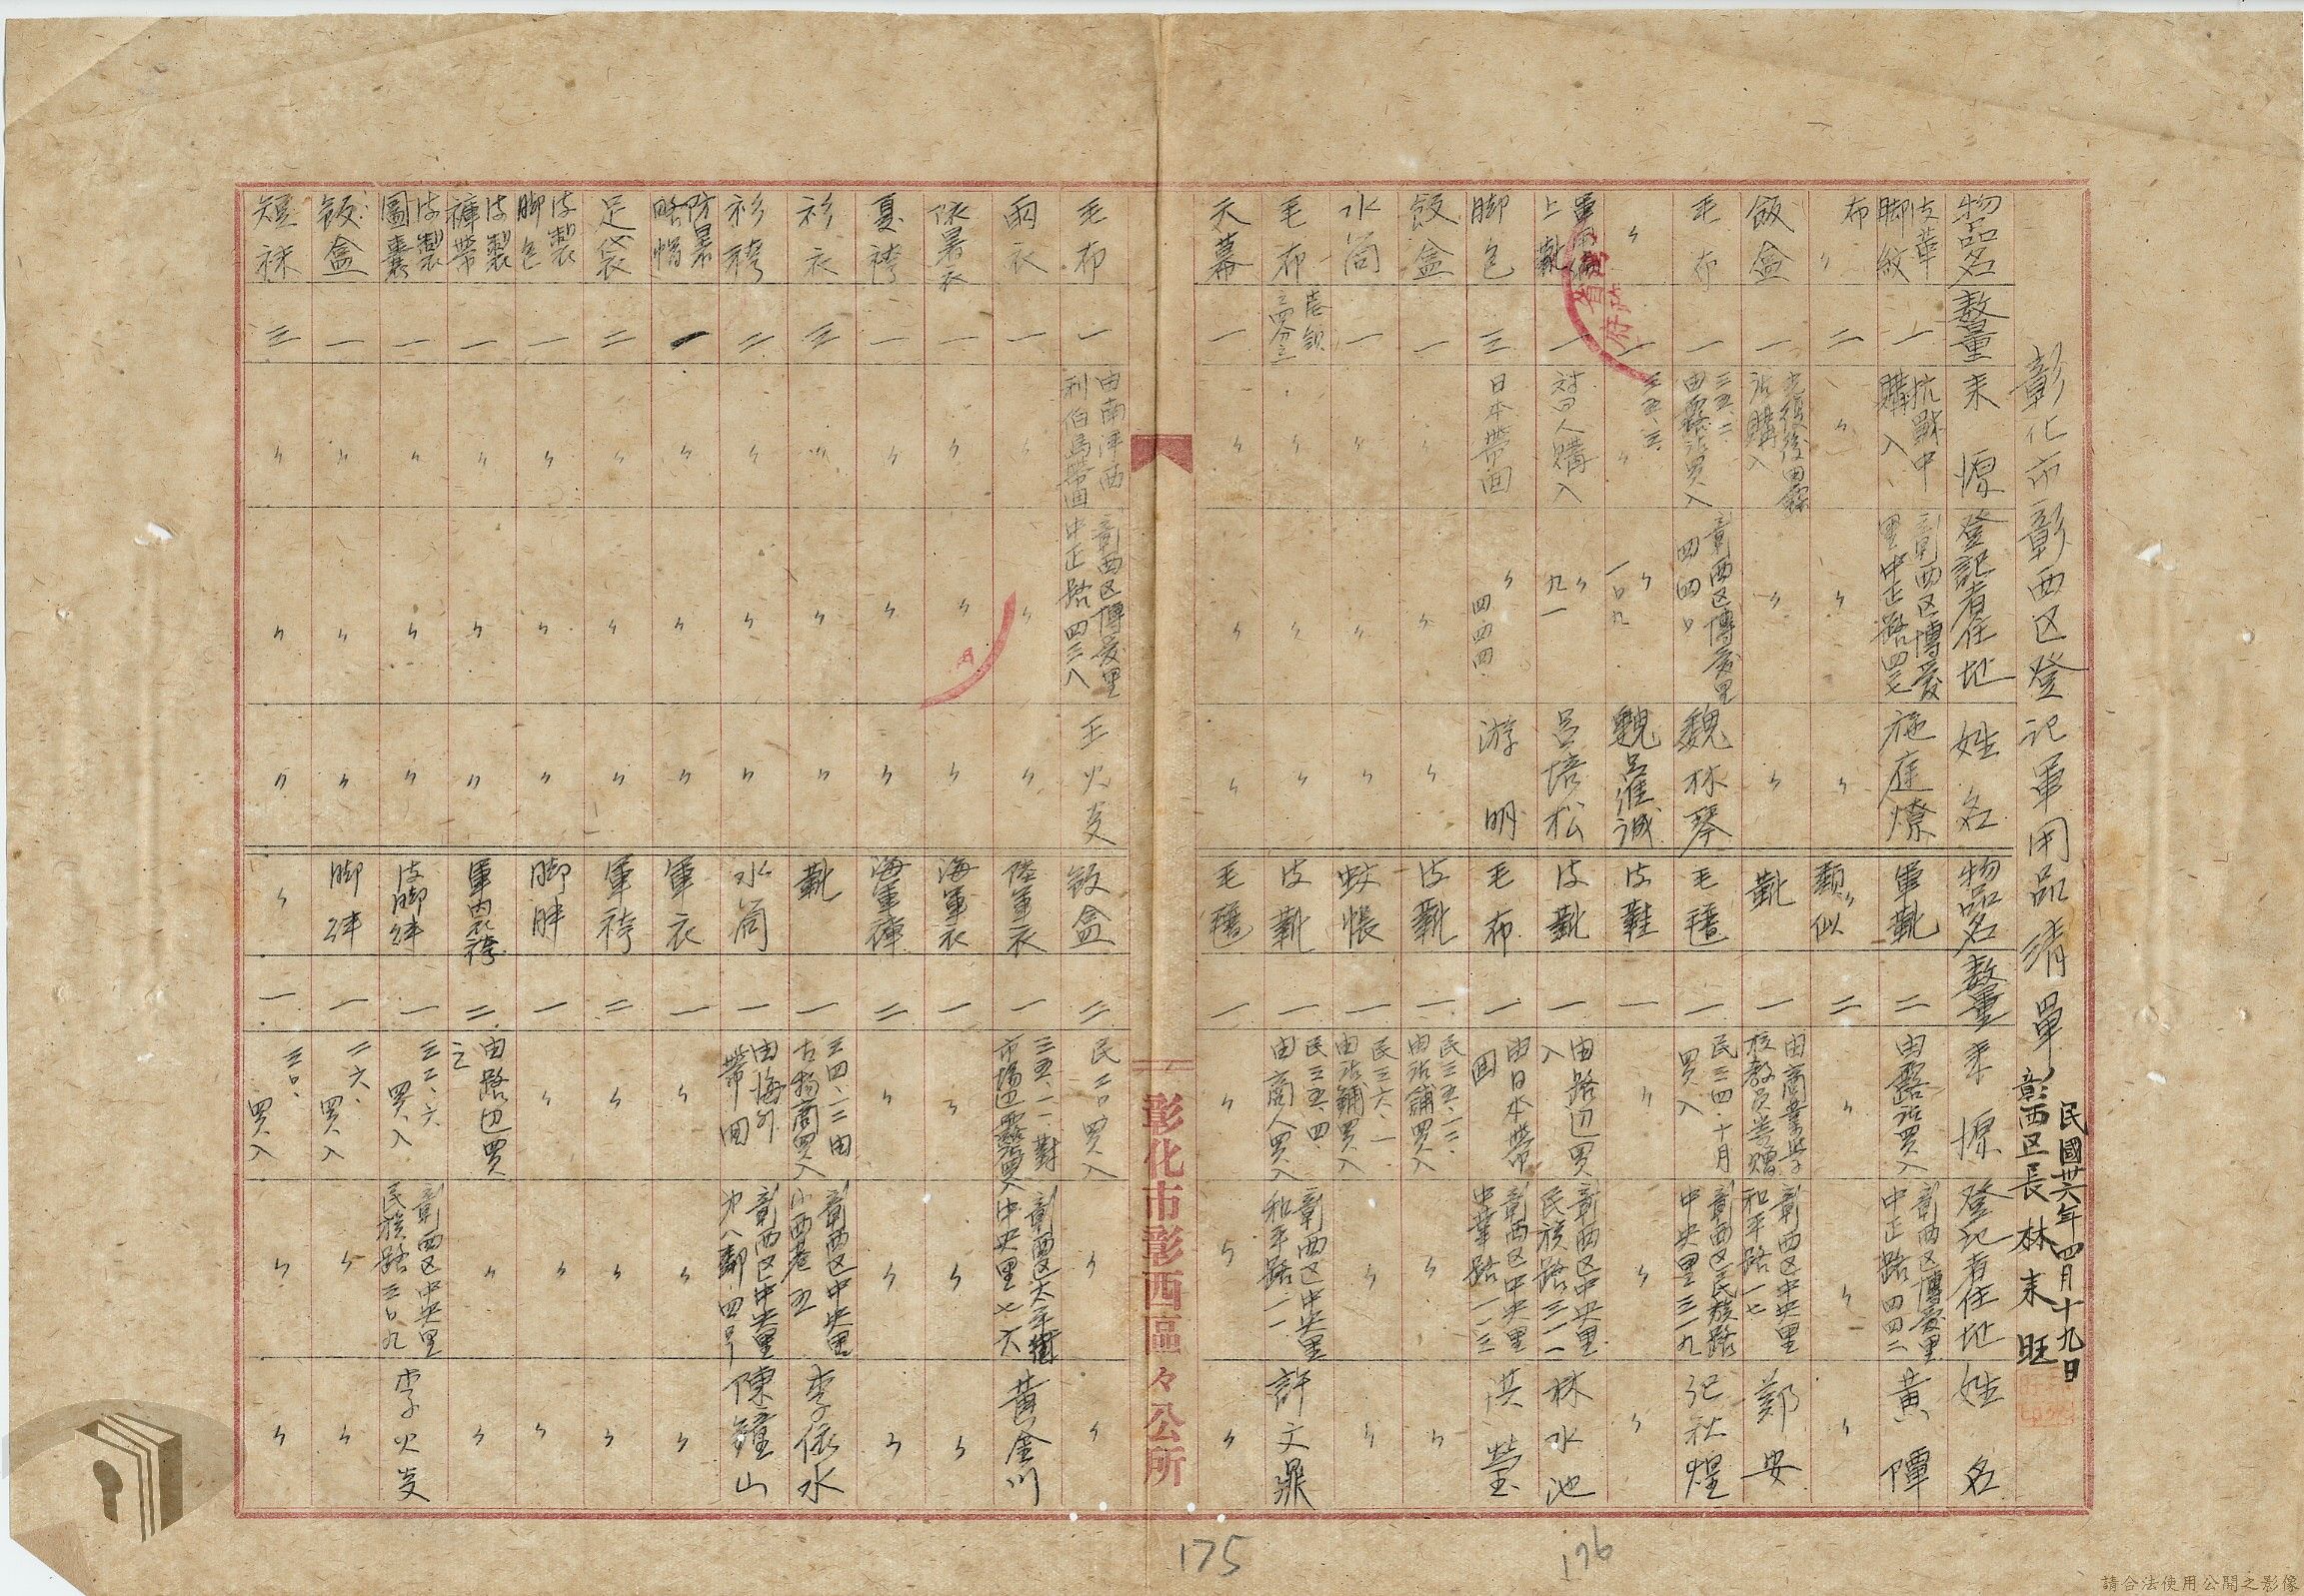 彰化市彰西区登記軍用品清單
民國卅六年四月十九日
彰西区長林来旺
物品名 数量 来源 登記者住地 姓名
皮革脚紋 一 抗戰中購入 彰西区博愛里中正路四七 施庭燎
布〃 二 〃 〃 〃
飯盒 一 光復後由露店購入 〃 〃
毛布 一 三五、二、由露店買入 彰西区博愛里四四〇 魏林琴
〃 一 三五、五、〃 〃一〇九
軍用編上靴 一 対日人購入 〃九一 呂培松
脚包 三 日本帶回 〃四四四 游明
飯盒 一 〃 〃 〃
水筒 一 〃 〃 〃
毛布 〃 〃 〃
天幕 一 〃 〃 〃
毛布 一 由南洋西利伯島帶回 彰西区博愛里中正路四三八 王火炎
雨衣 一 〃 〃 〃
防暑衣 一 〃 〃 〃
夏袴 一 〃 〃 〃
衫衣 三 〃 〃 〃
衫袴 二 〃 〃 〃
防暑略帽 一 〃 〃 〃
足袋 二 〃 〃 〃
皮製脚包 一 〃 〃 〃
皮製褲帶 一 〃 〃 〃
皮製圖囊 一 〃 〃 〃
飯盒 一 〃 〃 〃
短袜 三 〃 〃 〃
物品名 数量 来源 登記者住地 姓名
軍靴 二 由露店買入 彰西区博愛里中正路四四二 黃陣
〃類似 二 〃 〃 〃
靴 一 由商業学校教員寄贈 彰西区中央里和平路一七 鄭安
毛氈 一 民三四、十月買入 彰西区民族路中央里三一九 記秋煌
皮鞋 一 〃 〃 〃
皮靴 一 由路辺買入 彰西区中央里民族路三一一 林水池
毛布 一 由日本帶回 彰西区中央里中華路一一三 洪瑩
皮靴 一 民三五、一二、由店舖買入 〃 〃
蚊帳 一 民三六、一、由店舖買入 〃 〃
皮靴 一 民三五、四、由商人買入 彰西区中央里和平路二一 許文鼎
毛氈 一 〃 〃 〃
飯盒 二 民二〇買入 〃 〃
陸軍衣 一 三五、一一、對市場辺露店買入 彰西区太平街中央里七六 黃金川
海軍衣 一 〃 〃 〃
海軍褲 二 〃 〃 〃
靴 一 三四、一二由古物商買入 彰西区中央里小西巷五 李依水
水筒 一 由海外帶回 彰西区中央里第八鄰四号 陳鐘山
軍衣 一 〃 〃 〃
軍袴 二 〃 〃 〃
脚胖 一 〃 〃 〃
軍内衣袴 二 由路辺買之 〃 〃
皮脚絆 一 三二、六買入 彰西区中央里民族路三〇九 李火炎
脚絆 一 二六、買入 〃 〃
〃 一 三〇、買入 〃 〃
彰化市彰西區々公所
175
176
請合法使用公開之影像